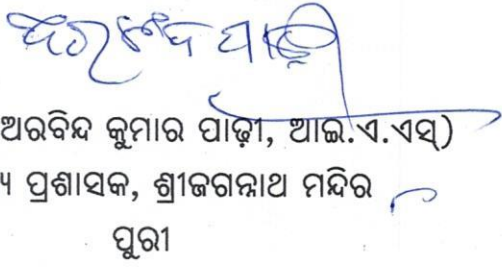 ଅରବିନ୍ଦ ପାଢ଼ୀ
ଅରବିନ୍ଦ କୁମାର ପାଢ଼ୀ, ଆଇ.ଏ.ଏସ୍)
ୟ ପ୍ରଶାସକ, ଶ୍ରୀଜଗନ୍ନାଥ ମନ୍ଦିର
ପୁରୀ